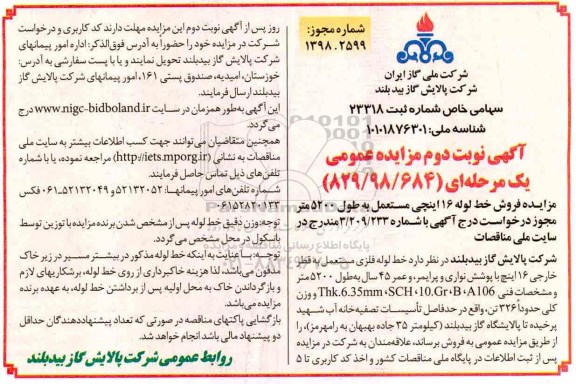 شماره مجوز:
۱۳۹۸.۲۵۹۹
شرکت ملی گاز ایران
شرکت پالایش گاز بیدبلند
سهامی خاص شماره ثبت ۲۳۳۱۸
شناسه ملی: ۱۰۱۰۱۸۷۶۳۰۱
آگهی نوبت دوم مزایده عمومی
یک مرحله‌ای (۸۲۹/۹۸/۶۸۴)
مزایده فروش خط لوله ۱۶ اینچی مستعمل به طول ۵۲۰۰ متر
مجوز درخواست درج آگهی با شماره ۳/۲۰۹/۲۳۳ مندرج در
سایت ملی مناقصات
شرکت پالایش گاز بیدبلند در نظر دارد خط لوله فلزی مستعمل به قطر
خارجی ۱۶ اینچ با پوشش نواری و پرایمر، و عمر ۴۵ سال به‌طول ۵۲۰۰ متر
و مشخصات فنی Thk.6.35mm ،SCH ،10.Gr،B،A106 و وزن
کلی حدوداً ۳۲۶ تن، واقع در حدفاصل تأسیسات تصفیه‌خانه آب شهید
پرخیده تا پالایشگاه گاز بیدبلند (کیلومتر ۳۵ جاده بهبهان به رامهرمز)، را
از طریق مزایده عمومی به فروش برساند، علاقه‌مندان به شرکت در مزایده
پس از ثبت اطلاعات در پایگاه ملی مناقصات کشور و اخذ کد کاربری تا ۵
روز پس از آگهی نوبت دوم این مزایده مهلت دارند کد کاربری و درخواست
شرکت در مزایده خود را حضوراً به آدرس فوق‌الذکر: اداره امور پیمانهای
شرکت پالایش گاز بیدبلند تحویل نمایند و یا با پست سفارشی به آدرس:
خوزستان، امیدیه، صندوق پستی ۱۶۱، امور پیمانهای شرکت پالایش گاز
بیدبلند ارسال فرمایند.
این آگهی به‌طور همزمان در سایت www.nigc-bidboland.ir درج
می‌گردد.
همچنین متقاضیان می‌توانند جهت کسب اطلاعات بیشتر به سایت ملی
مناقصات به نشانی (http://iets.mporg.ir) مراجعه نموده، یا با شماره
تلفن‌های ذیل تماس حاصل فرمایند.
شماره تلفن‌های امور پیمانها: ۵۲۱۳۲۰۵۲ و ۵۲۱۳۲۰۴۹-۰۶۱ فکس
۰۶۱۵۲۸۲۰۱۳۳
توجه: وزن دقیق خط لوله پس از مشخص شدن برنده مزایده با توزین توسط
باسکول در محل مشخص می‌گردد.
توجه: با عنایت به اینکه خط لوله مذکور در بیشتر مسیر در زیر خاک
مدفون می‌باشد، لذا هزینه خاکبرداری از روی خط لوله، برشکاریهای لازم
و بازگرداندن خاک به محل اولیه پس از برداشتن خط لوله، به عهده برنده
مزایده می‌باشد.
بازگشایی پاکتهای مناقصه در صورتی که تعداد پیشنهاددهندگان حداقل
دو پیشنهاد مالی باشد انجام خواهد شد.
روابط عمومی شرکت پالایش گاز بیدبلند